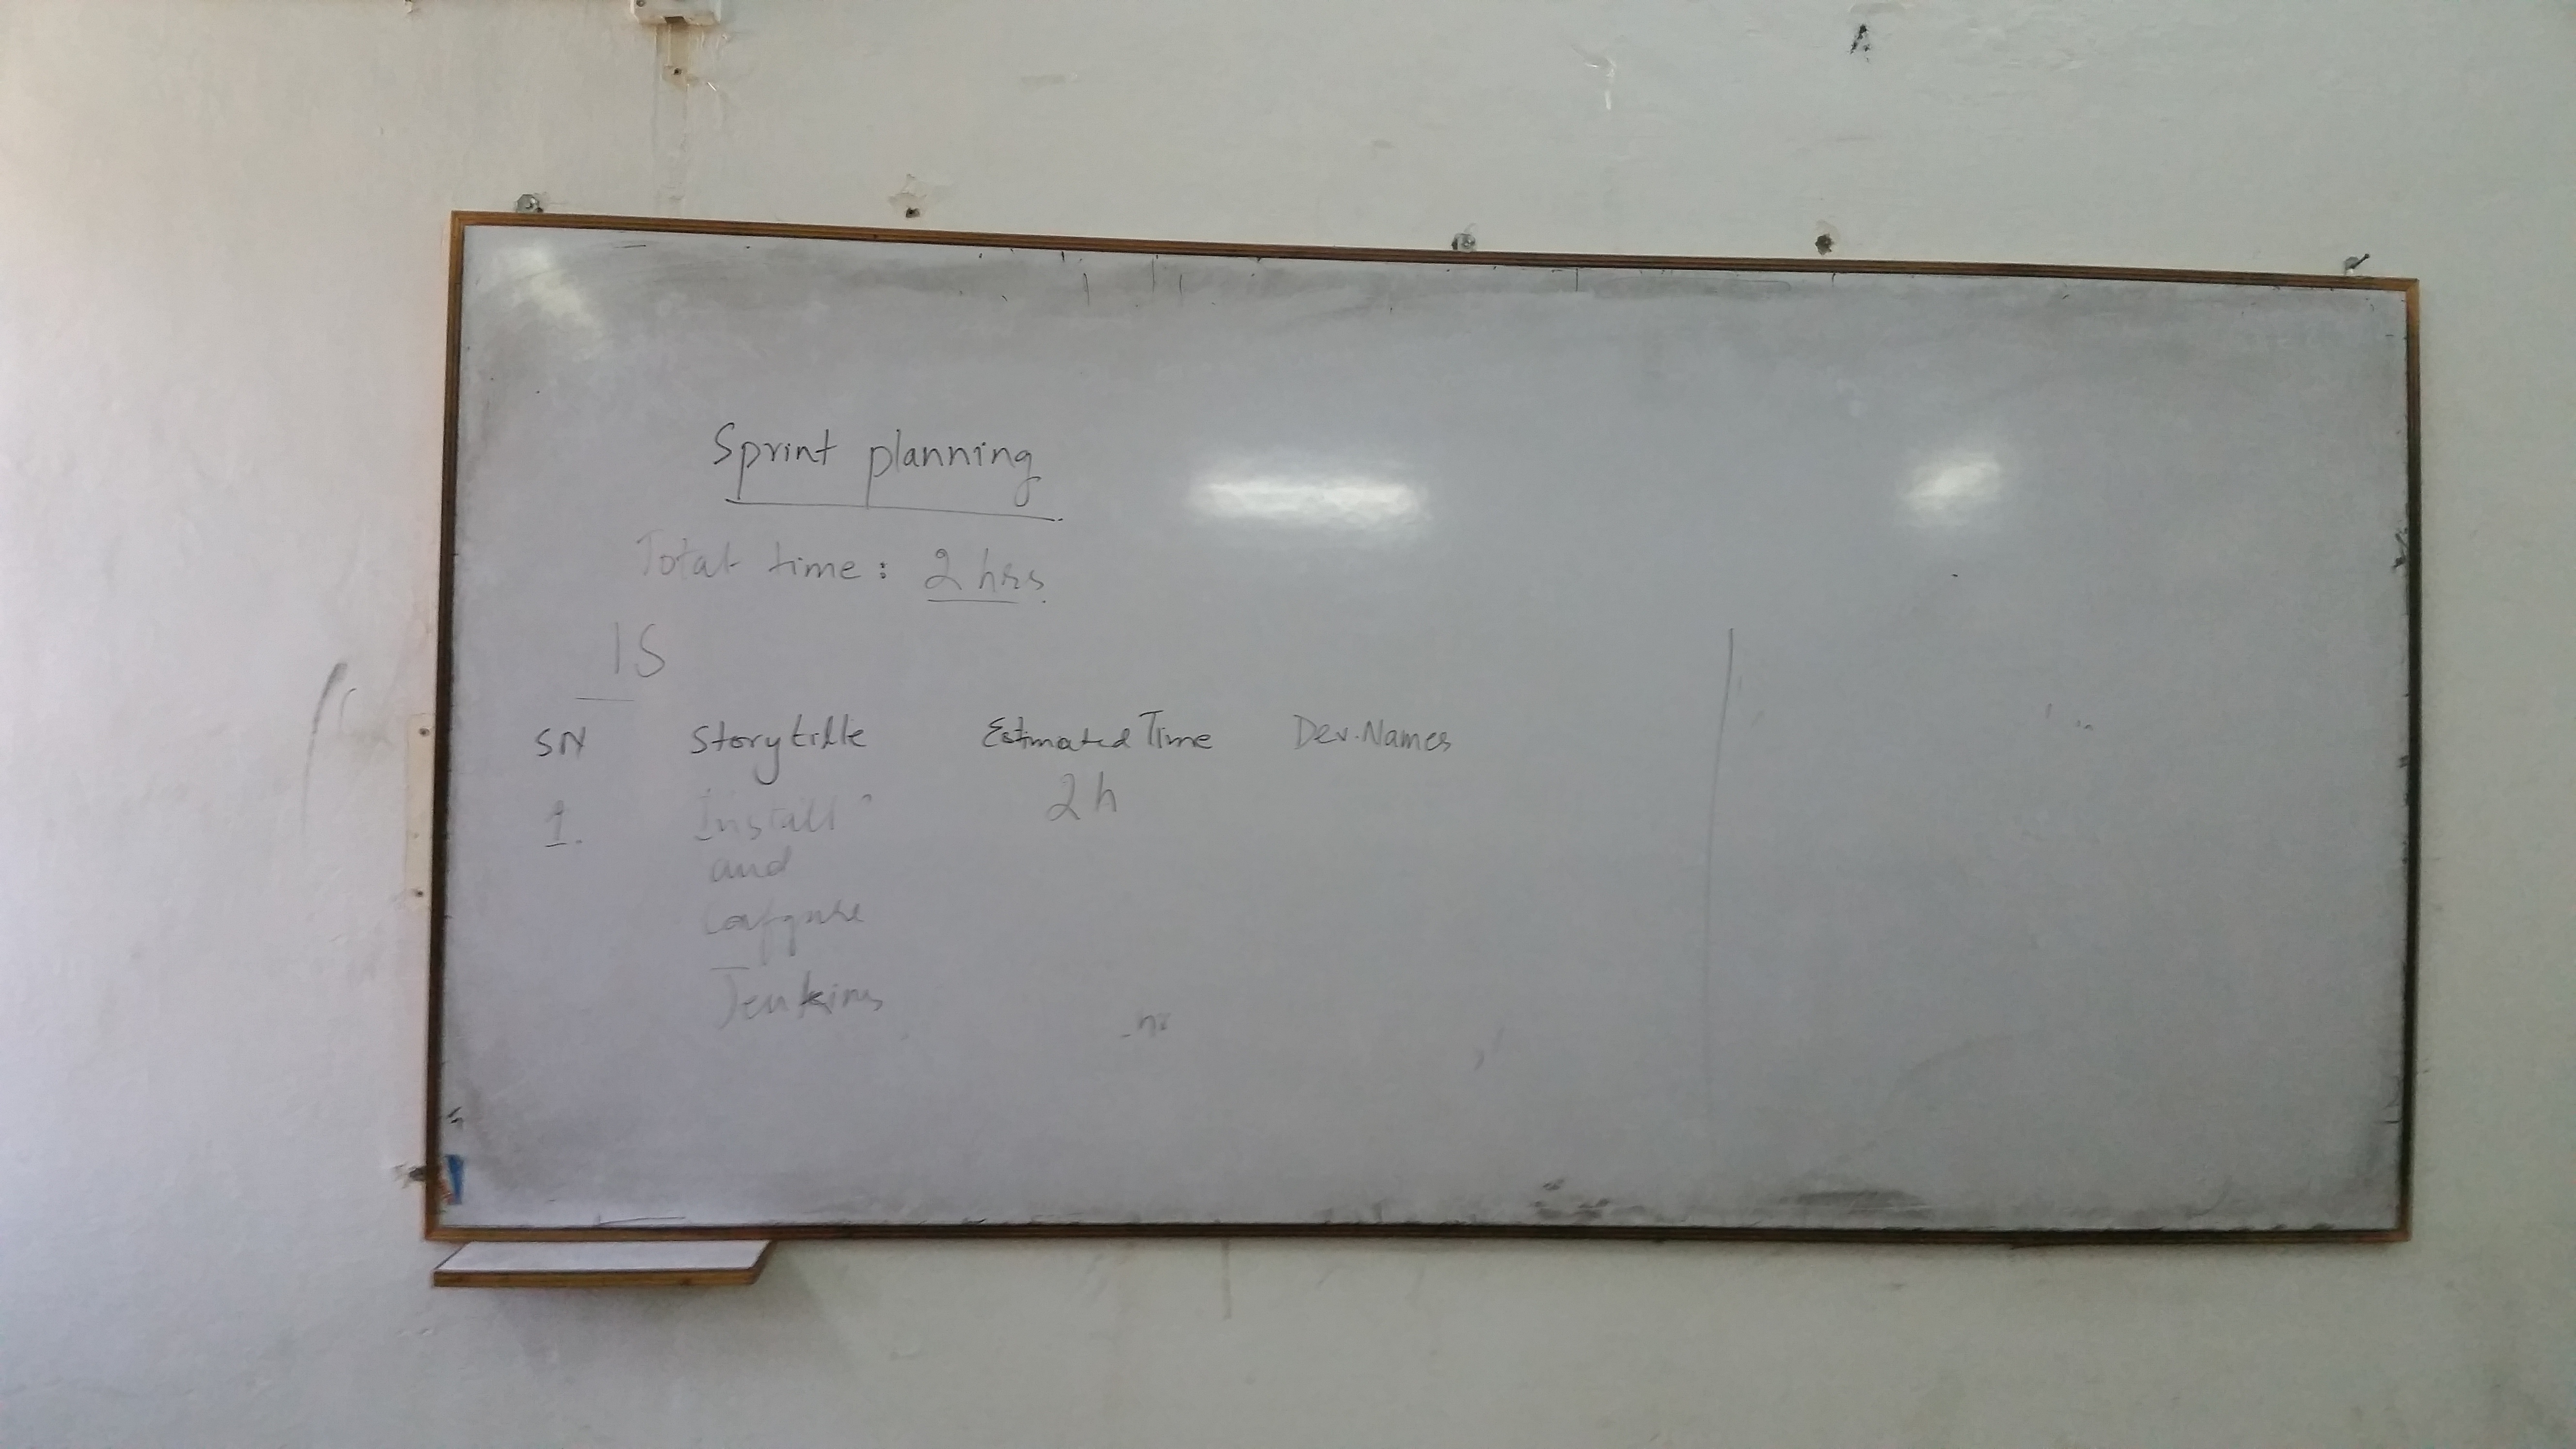 Sprint planning
Total time: 2 hrs.
SN Storytitle Estimated Time Dev. Names
1. Install 2h
and
Configure
Jenkins